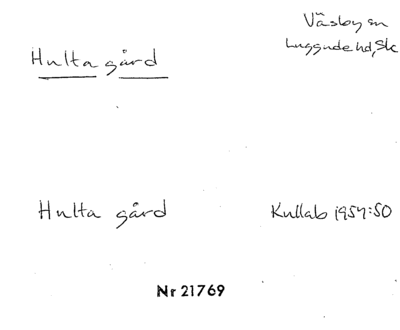 Väsby sn
Luggude hd, Sk
Hulta gård
Hulta gård
Kullab 1957:50
Nr 21769